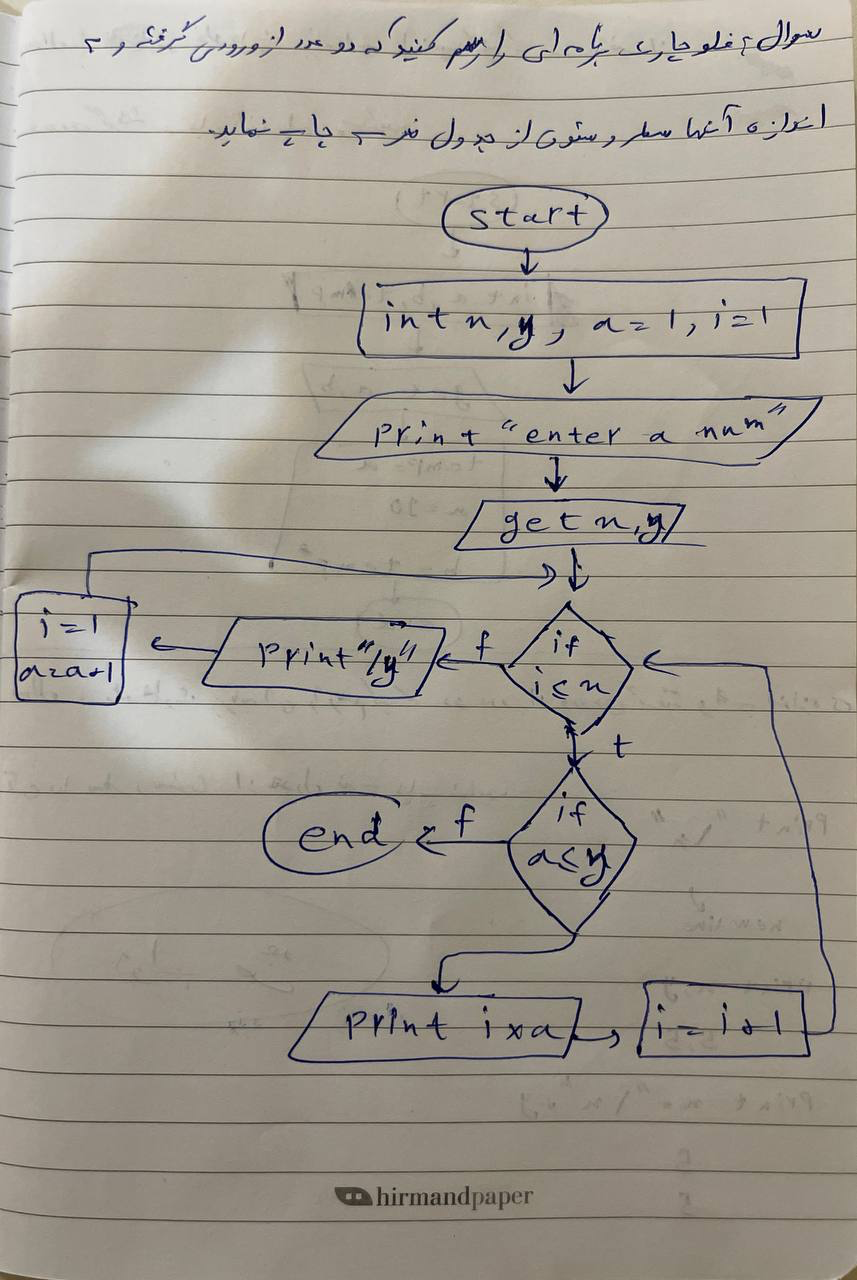 سوال: فلوچارت برنامه ای را رسم کنید که دو عدد از ورودی گرفته و به
اندازه آنها سطر و ستون از جدول ضرب چاپ نماید.
start
int n, y, a = 1, i = 1
print "enter a num"
get n, y
if
i ≤ n
f
print "/y"
i = 1
a = a + 1
t
if
a ≤ y
f
end
print i × a
i = i + 1
hirmandpaper